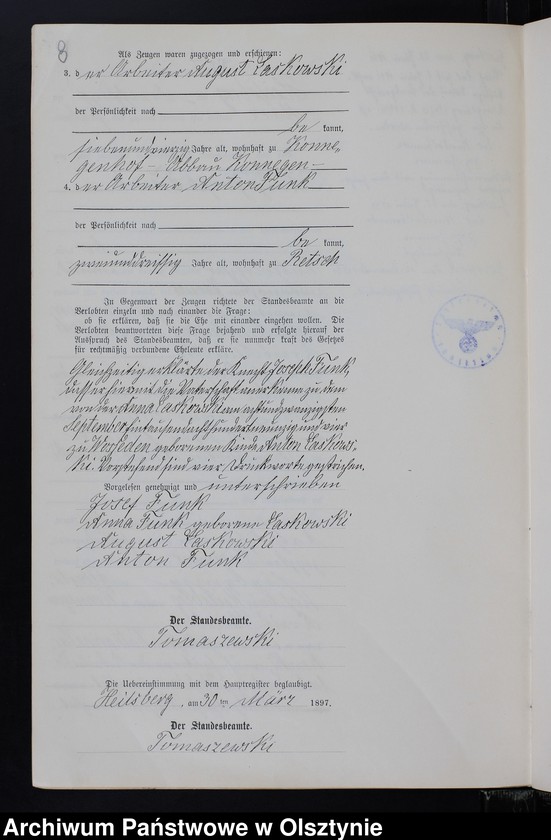 8
Als Zeugen waren zugezogen und erschienen:
3. der Arbeiter August Laskowski
der Persönlichkeit nach
be kannt,
siebenundvierzig Jahre alt, wohnhaft zu Konne-
genhof – Abbau Konnegen –
4. der Arbeiter Anton Funk
der Persönlichkeit nach
be kannt,
zweiunddreissig Jahre alt, wohnhaft zu Retsch
In Gegenwart der Zeugen richtete der Standesbeamte an die
Verlobten einzeln und nach einander die Frage:
ob sie erklären, daß sie die Ehe mit einander eingehen wollen. Die
Verlobten beantworteten diese Frage bejahend und erfolgte hierauf der
Ausspruch des Standesbeamten, daß er sie nunmehr kraft des Gesetzes
für rechtmäßig verbundene Eheleute erkläre.
Gleichzeitig erklärte der Knecht Joseph Funk,
dass er hiermit die Vaterschaft anerkenne zu dem
von der Anna Laskowski am achtundzwanzigsten
September eintausendachthundertneunzig und vier
zu Workeden geborenen Kinde Anton Laskows-
ki. Vorstehend sind vier Druckworte gestrichen.
Vorgelesen genehmigt und unterschrieben
Josef Funk
Anna Funk geborene Laskowski
August Laskowski
Anton Funk
Der Standesbeamte.
Tomaszewski
Die Uebereinstimmung mit dem Hauptregister beglaubigt.
Heilsberg, am 30ten März 1897.
Der Standesbeamte.
Tomaszewski
Archiwum Państwowe w Olsztynie